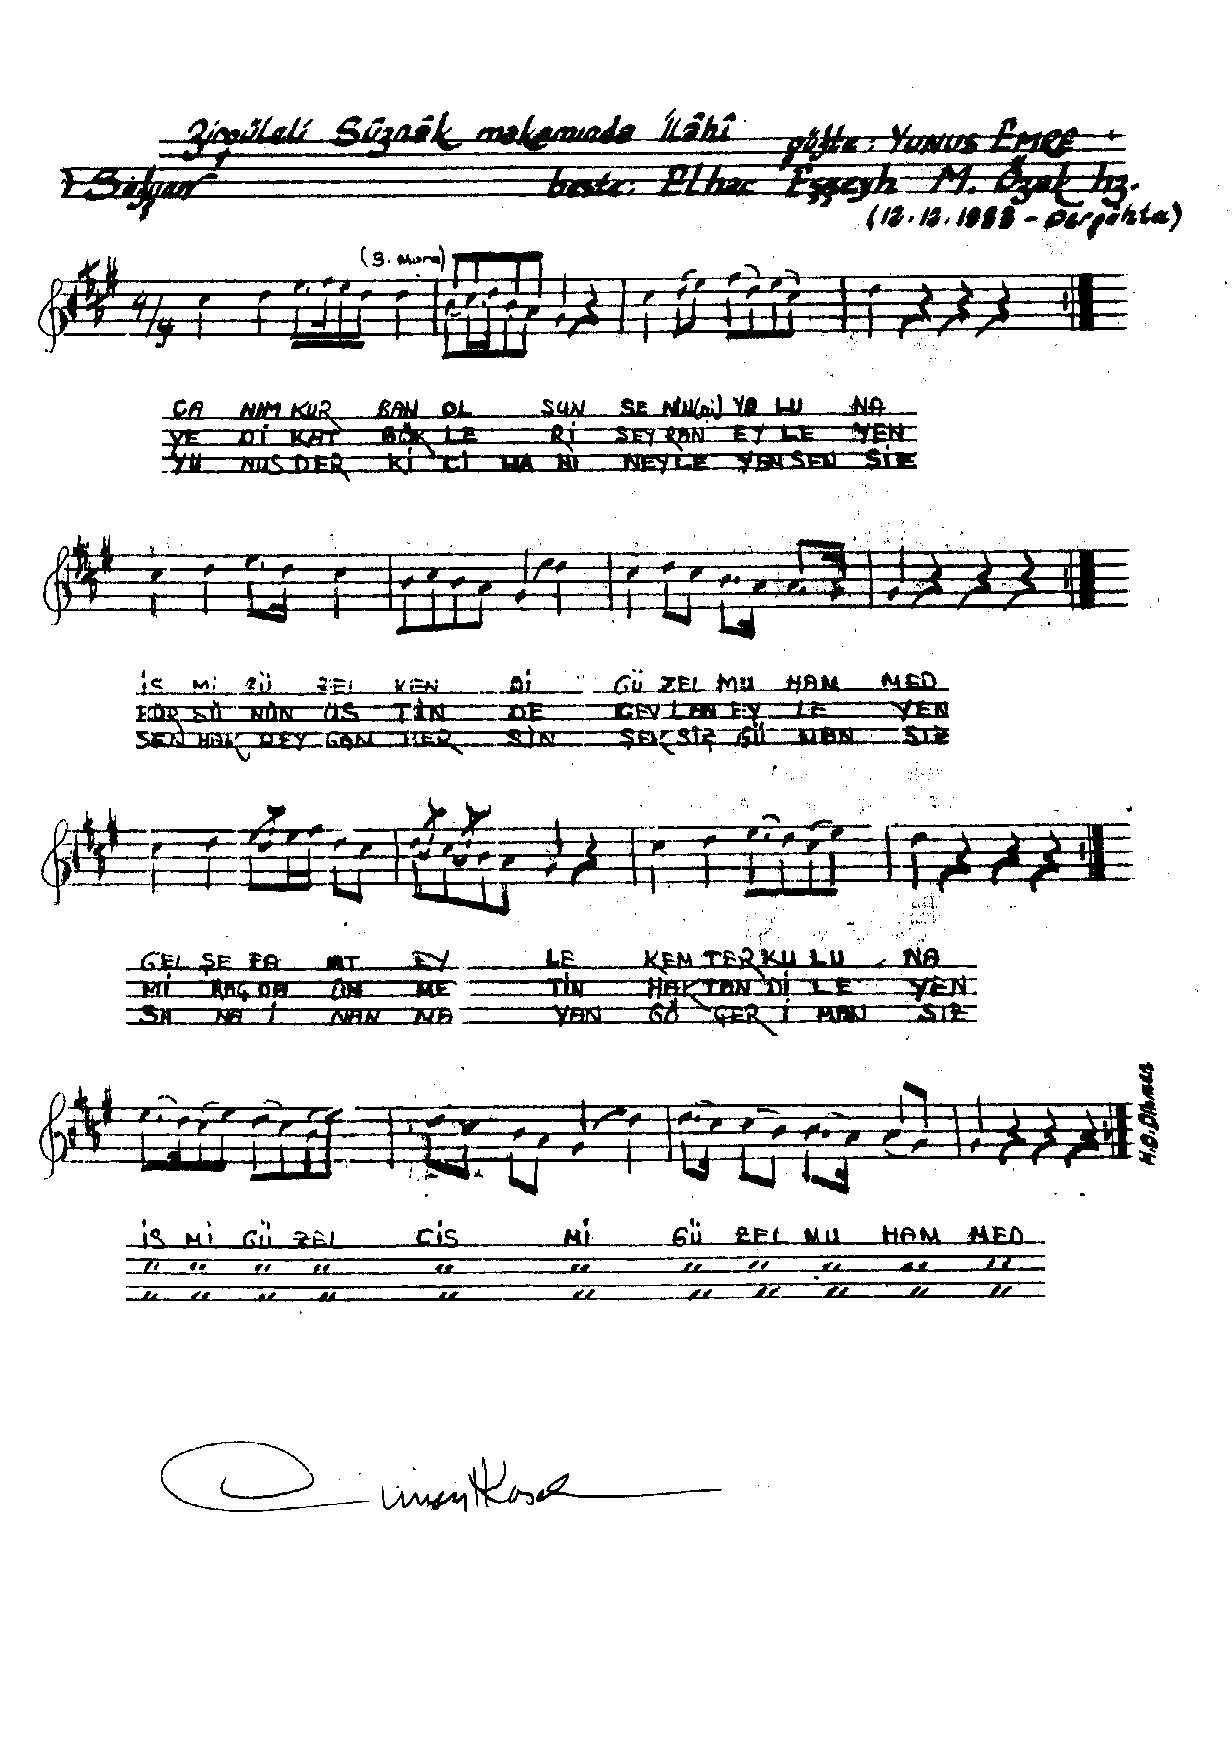 Zirgüleli Sûznâk makamında İlâhî
güfte: YUNUS EMRE
Sofyan
beste: Elhac Eşşeyh M. Özak hz.
(12.12.1983 - Dergâhta)
CA NIM KUR BAN OL SUN SE NİN YO LU NA
YE Dİ KAT GÖK LE Rİ SEYRAN EY LE YEN
YU NUS DER Kİ Cİ HA NI NEYLE YEN SEN SİZ
İS Mİ GÜ ZEL KEN Dİ GÜ ZEL MU HAM MED
KÜR SÜ NÜN ÜS TÜN DE CEVLAN EY LE YEN
SEN HAK PEY GAM BER SİN ŞEK SİZ GÜ MAN SIZ
GEL ŞE FA AT EY LE KEM TER KU LU NA
Mİ RAÇ DA ÜM ME TİN HAK TAN Dİ LE YEN
SA NA İ NAN MA YAN GÖ ÇER İ MAN SIZ
H.B. Dönmez
İS Mİ GÜ ZEL CİS Mİ GÜ ZEL MU HAM MED
" " " " " " " " " " "
" " " " " " " " " " "